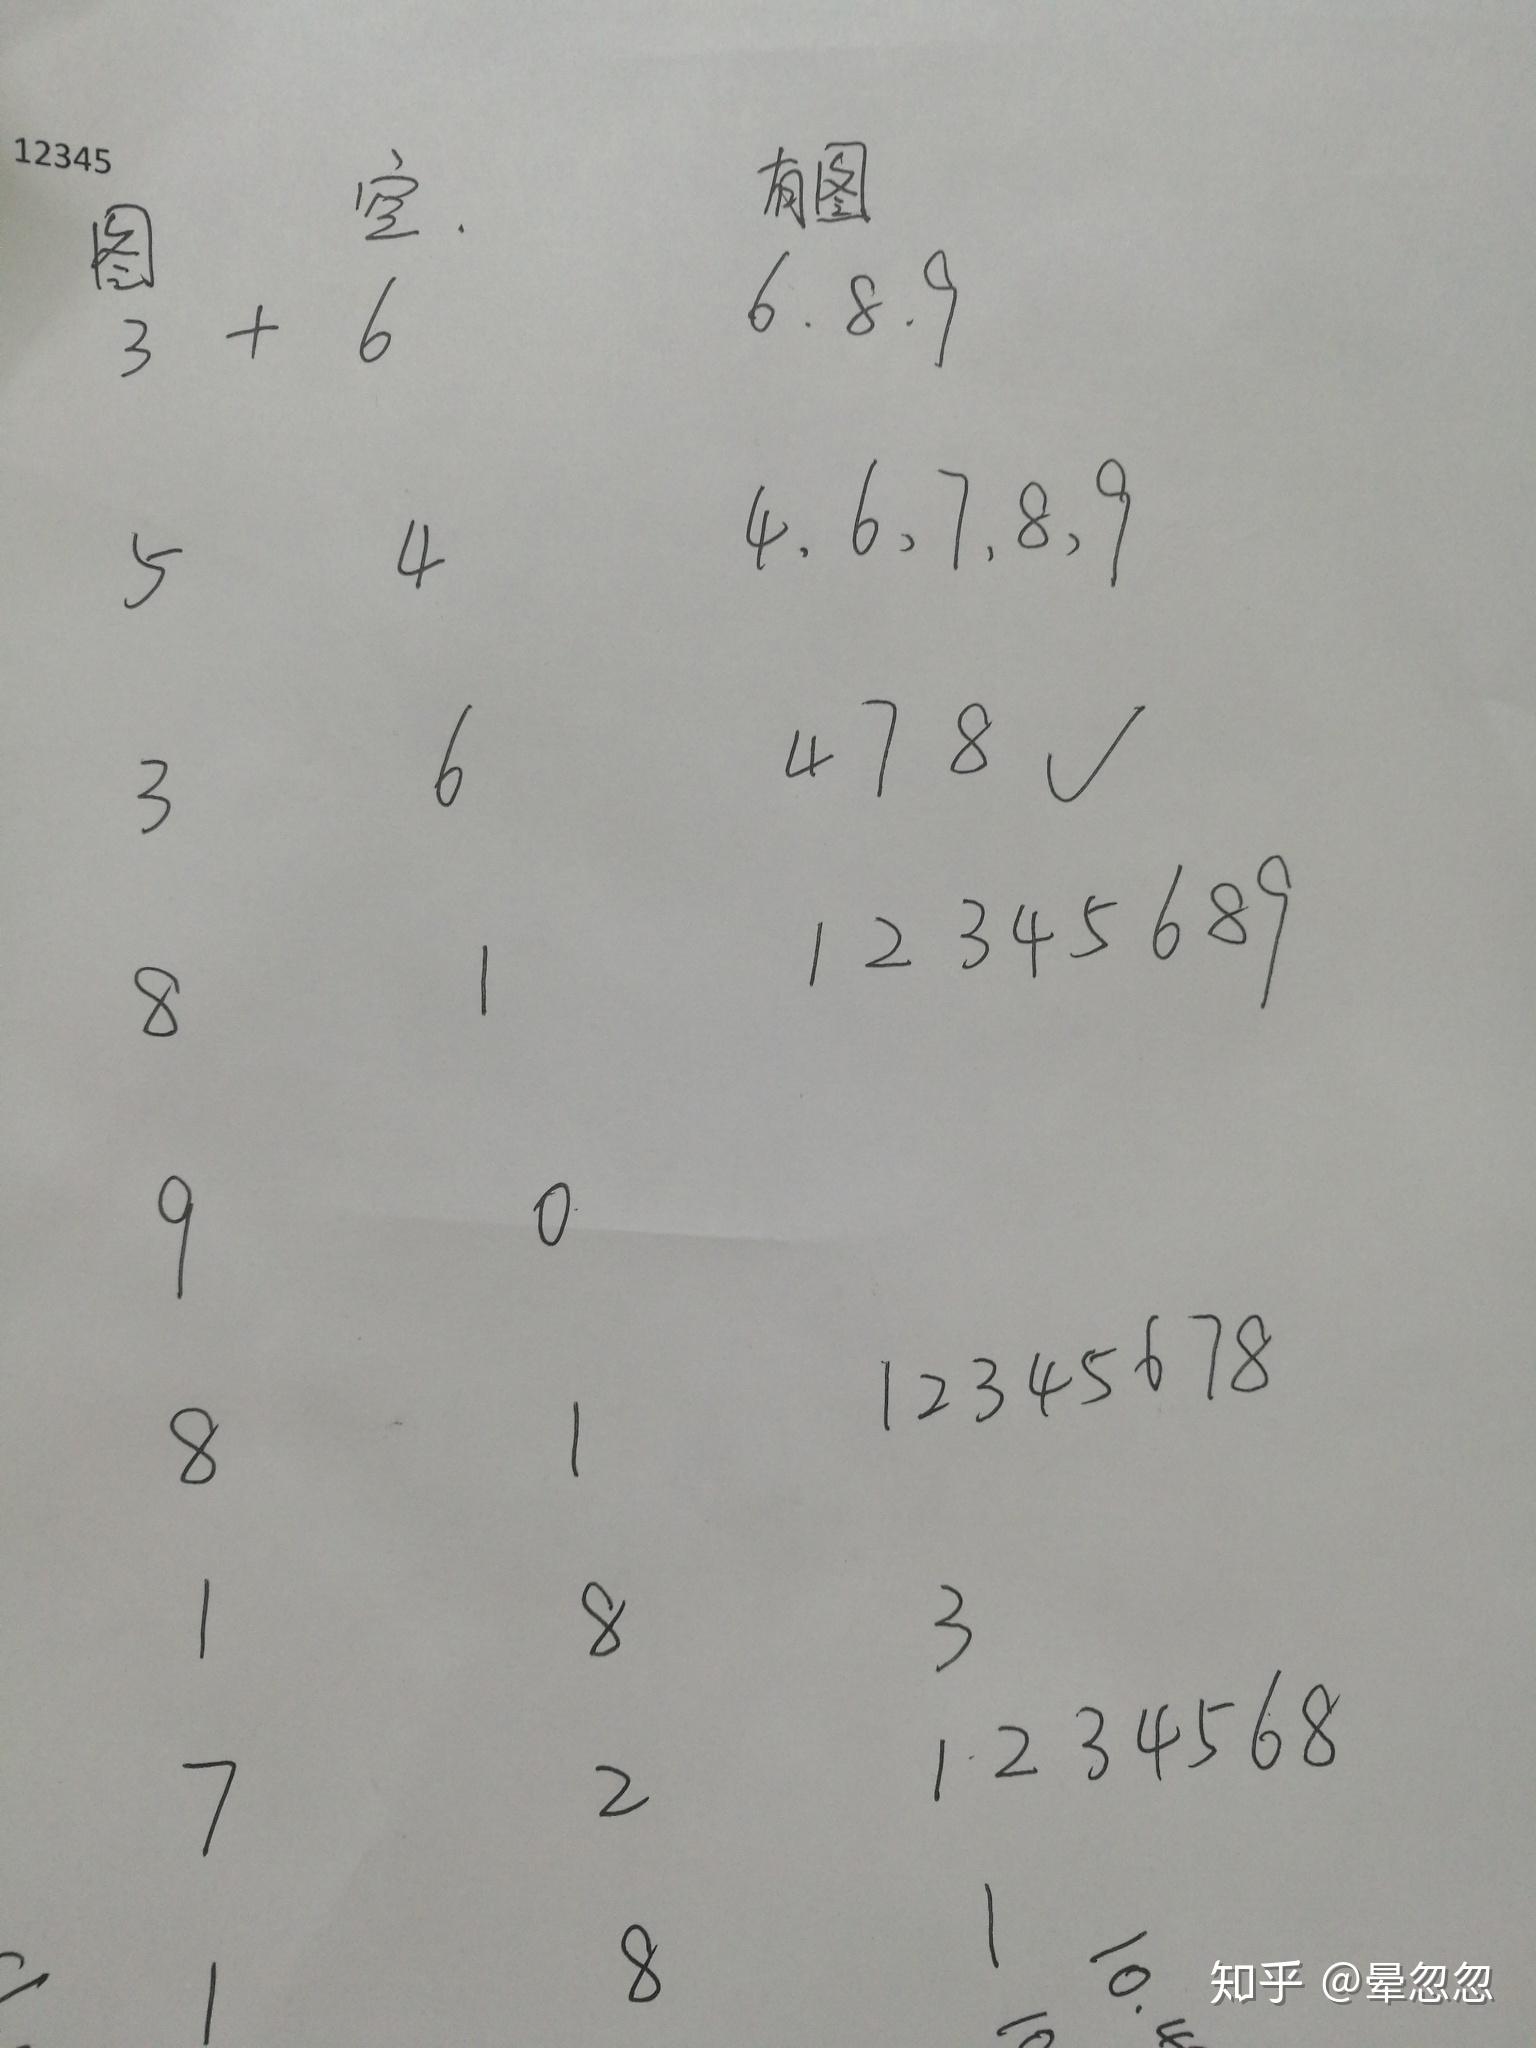 12345
图 空. 有图
3 + 6 6.8.9
5 4 4.6,7,8,9
3 6 4 7 8 ✓
8 1 1 2 3 4 5 6 8 9
9 0
8 1 1 2 3 4 5 6 7 8
1 8 3
7 2 1 2 3 4 5 6 8
1 8 1
10.
知乎 @晕忽忽